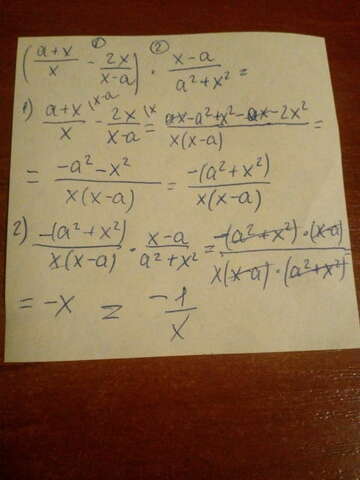 ( (a+x)/x -① 2x/(x-a) ) ·② (x-a)/(a²+x²) =
1) (a+x)/x |x-a - 2x/(x-a) |x = (ax-a²+x²-ax-2x²)/(x(x-a)) =
= (-a²-x²)/(x(x-a)) = (-(a²+x²))/(x(x-a))
2) (-(a²+x²))/(x(x-a)) · (x-a)/(a²+x²) = (-(a²+x²)·(x-a))/(x(x-a)·(a²+x²))
= -x = -1/x